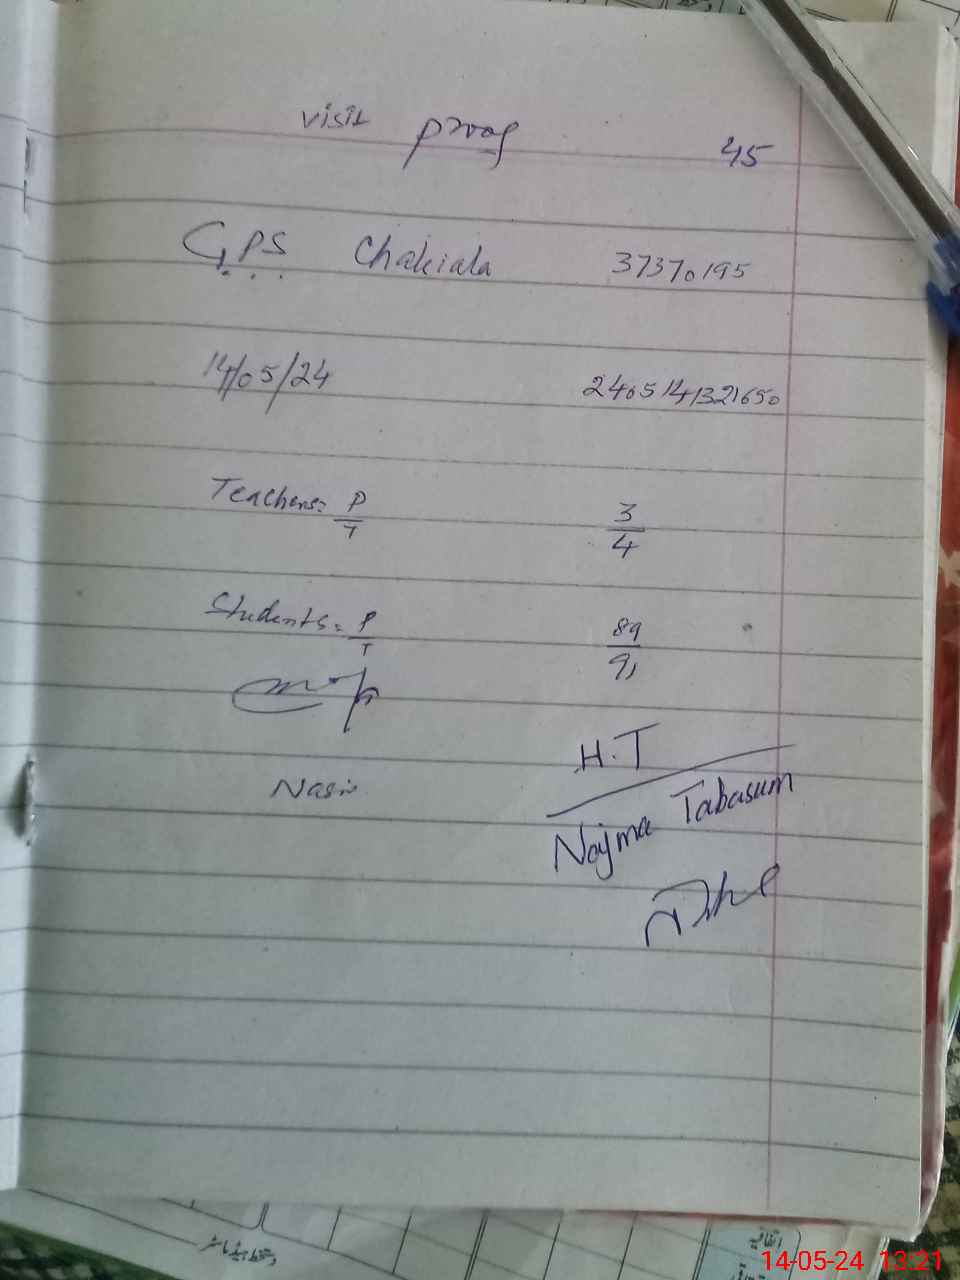 visit proof 45
G.P.S Chakiala 37370195
14/05/24 2405141321650
Teachers= P/T 3/4
Students= P/T 89/91
H.T
Nasir
Najma Tabasum
14-05-24 13:21